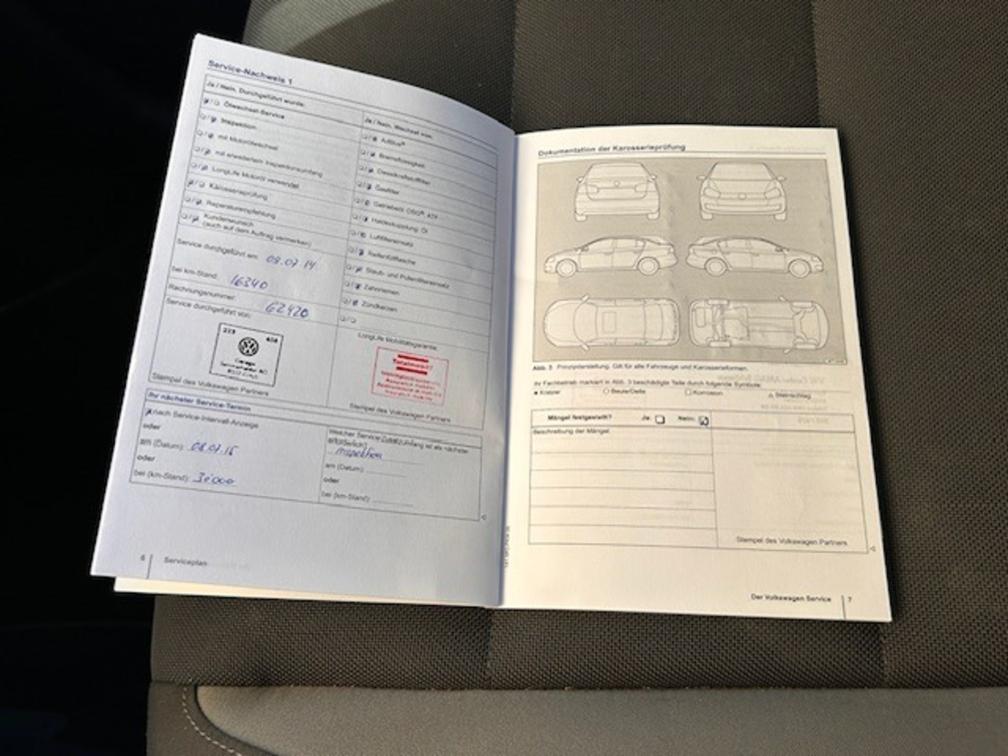 Service-Nachweis 1
Ja / Nein, Durchgeführt wurde:
Ölwechsel-Service
Inspektion
mit Motorölwechsel
mit erweitertem Inspektionsumfang
LongLife Motoröl verwendet
Karosserieprüfung
Reparaturempfehlung
Kundenwunsch
(auch auf dem Auftrag vermerken)
Service durchgeführt am: 09.07.14
bei km-Stand: 16340
Rechnungsnummer: 62420
Service durchgeführt von:
Stempel des Volkswagen Partners
Ja / Nein, Wechsel von:
AdBlue®
Bremsflüssigkeit
Dieselkraftstofffilter
Gasfilter
Getriebeöl: DSG®, ATF
Haldexkupplung: Öl
Luftfiltereinsatz
Reifenfüllflasche
Staub- und Pollenfiltereinsatz
Zahnriemen
Zündkerzen
LongLife Mobilitätsgarantie:
Totalmobil!
Stempel des Volkswagen Partners
Ihr nächster Service-Termin
nach Service-Intervall-Anzeige
oder
am (Datum): 08.07.15
oder
bei (km-Stand): 30'000
Welcher Service-Zusatzumfang ist als nächster
erforderlich?
Inspektion
am (Datum):
oder
bei (km-Stand):
6 Serviceplan
Dokumentation der Karosserieprüfung
Abb. 3 Prinzipdarstellung. Gilt für alle Fahrzeuge und Karosserieformen.
Ihr Fachbetrieb markiert in Abb. 3 beschädigte Teile durch folgende Symbole:
Kratzer Beule/Delle Korrosion Steinschlag
Mängel festgestellt? Ja Nein
Beschreibung der Mängel:
Stempel des Volkswagen Partners.
Der Volkswagen Service 7